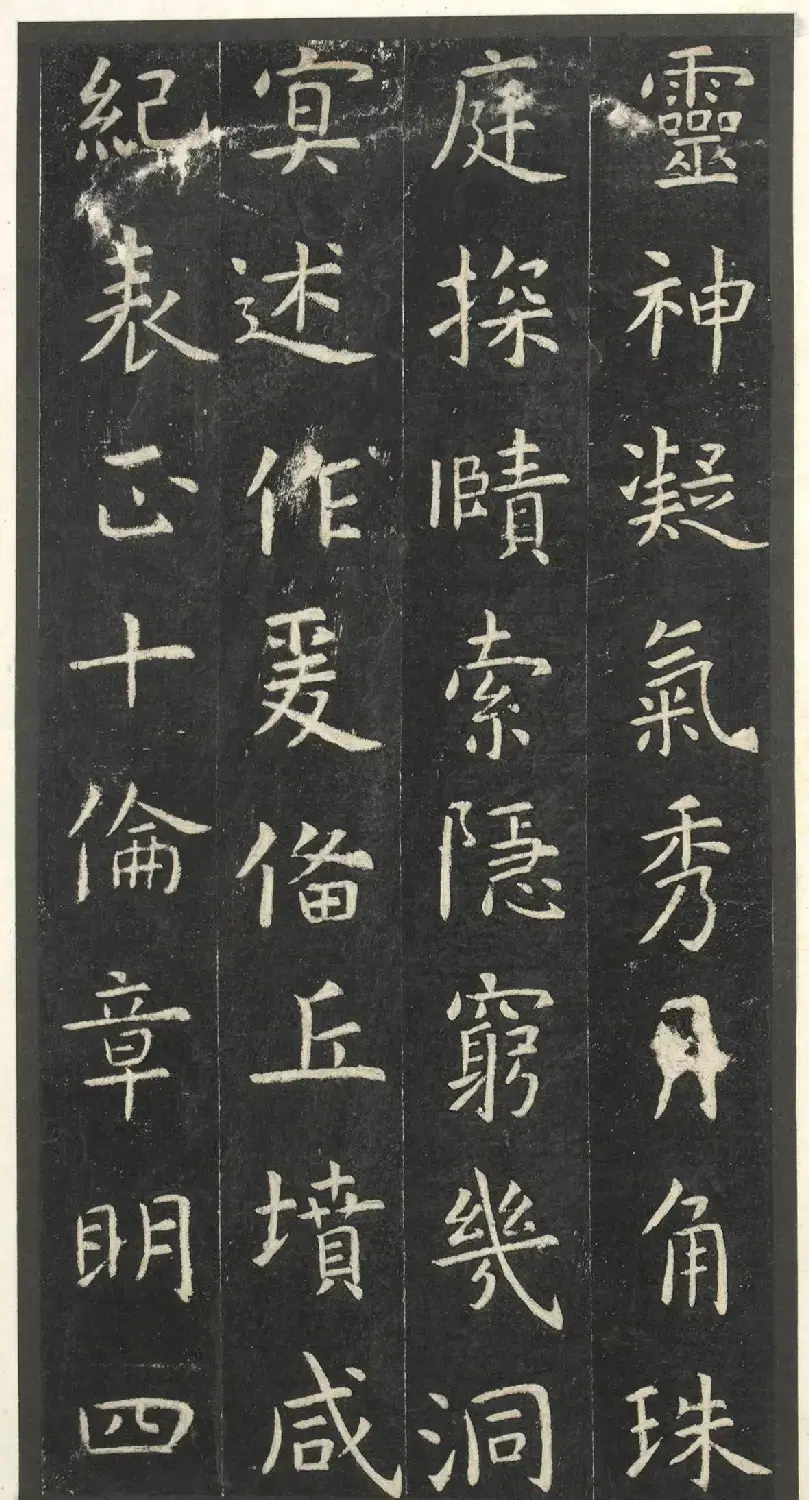 靈神凝氣秀月角珠
庭探賾索隱窮幾洞
冥述作爰俻丘墳咸
紀表正十倫章明四